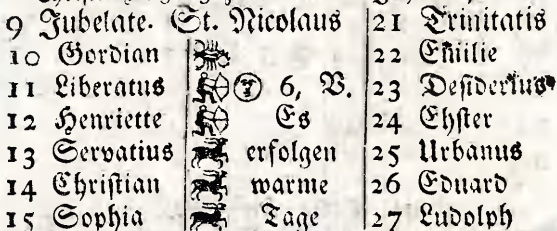 9 Jubelate. St. Nicolaus 21 Trinitatis
10 Gordian 22 Emilie
11 Liberatus 6, V. 23 Desiderius
12 Henriette Es 24 Ehster
13 Servatius erfolgen 25 Urbanus
14 Christian warme 26 Eduard
15 Sophia Tage 27 Ludolph